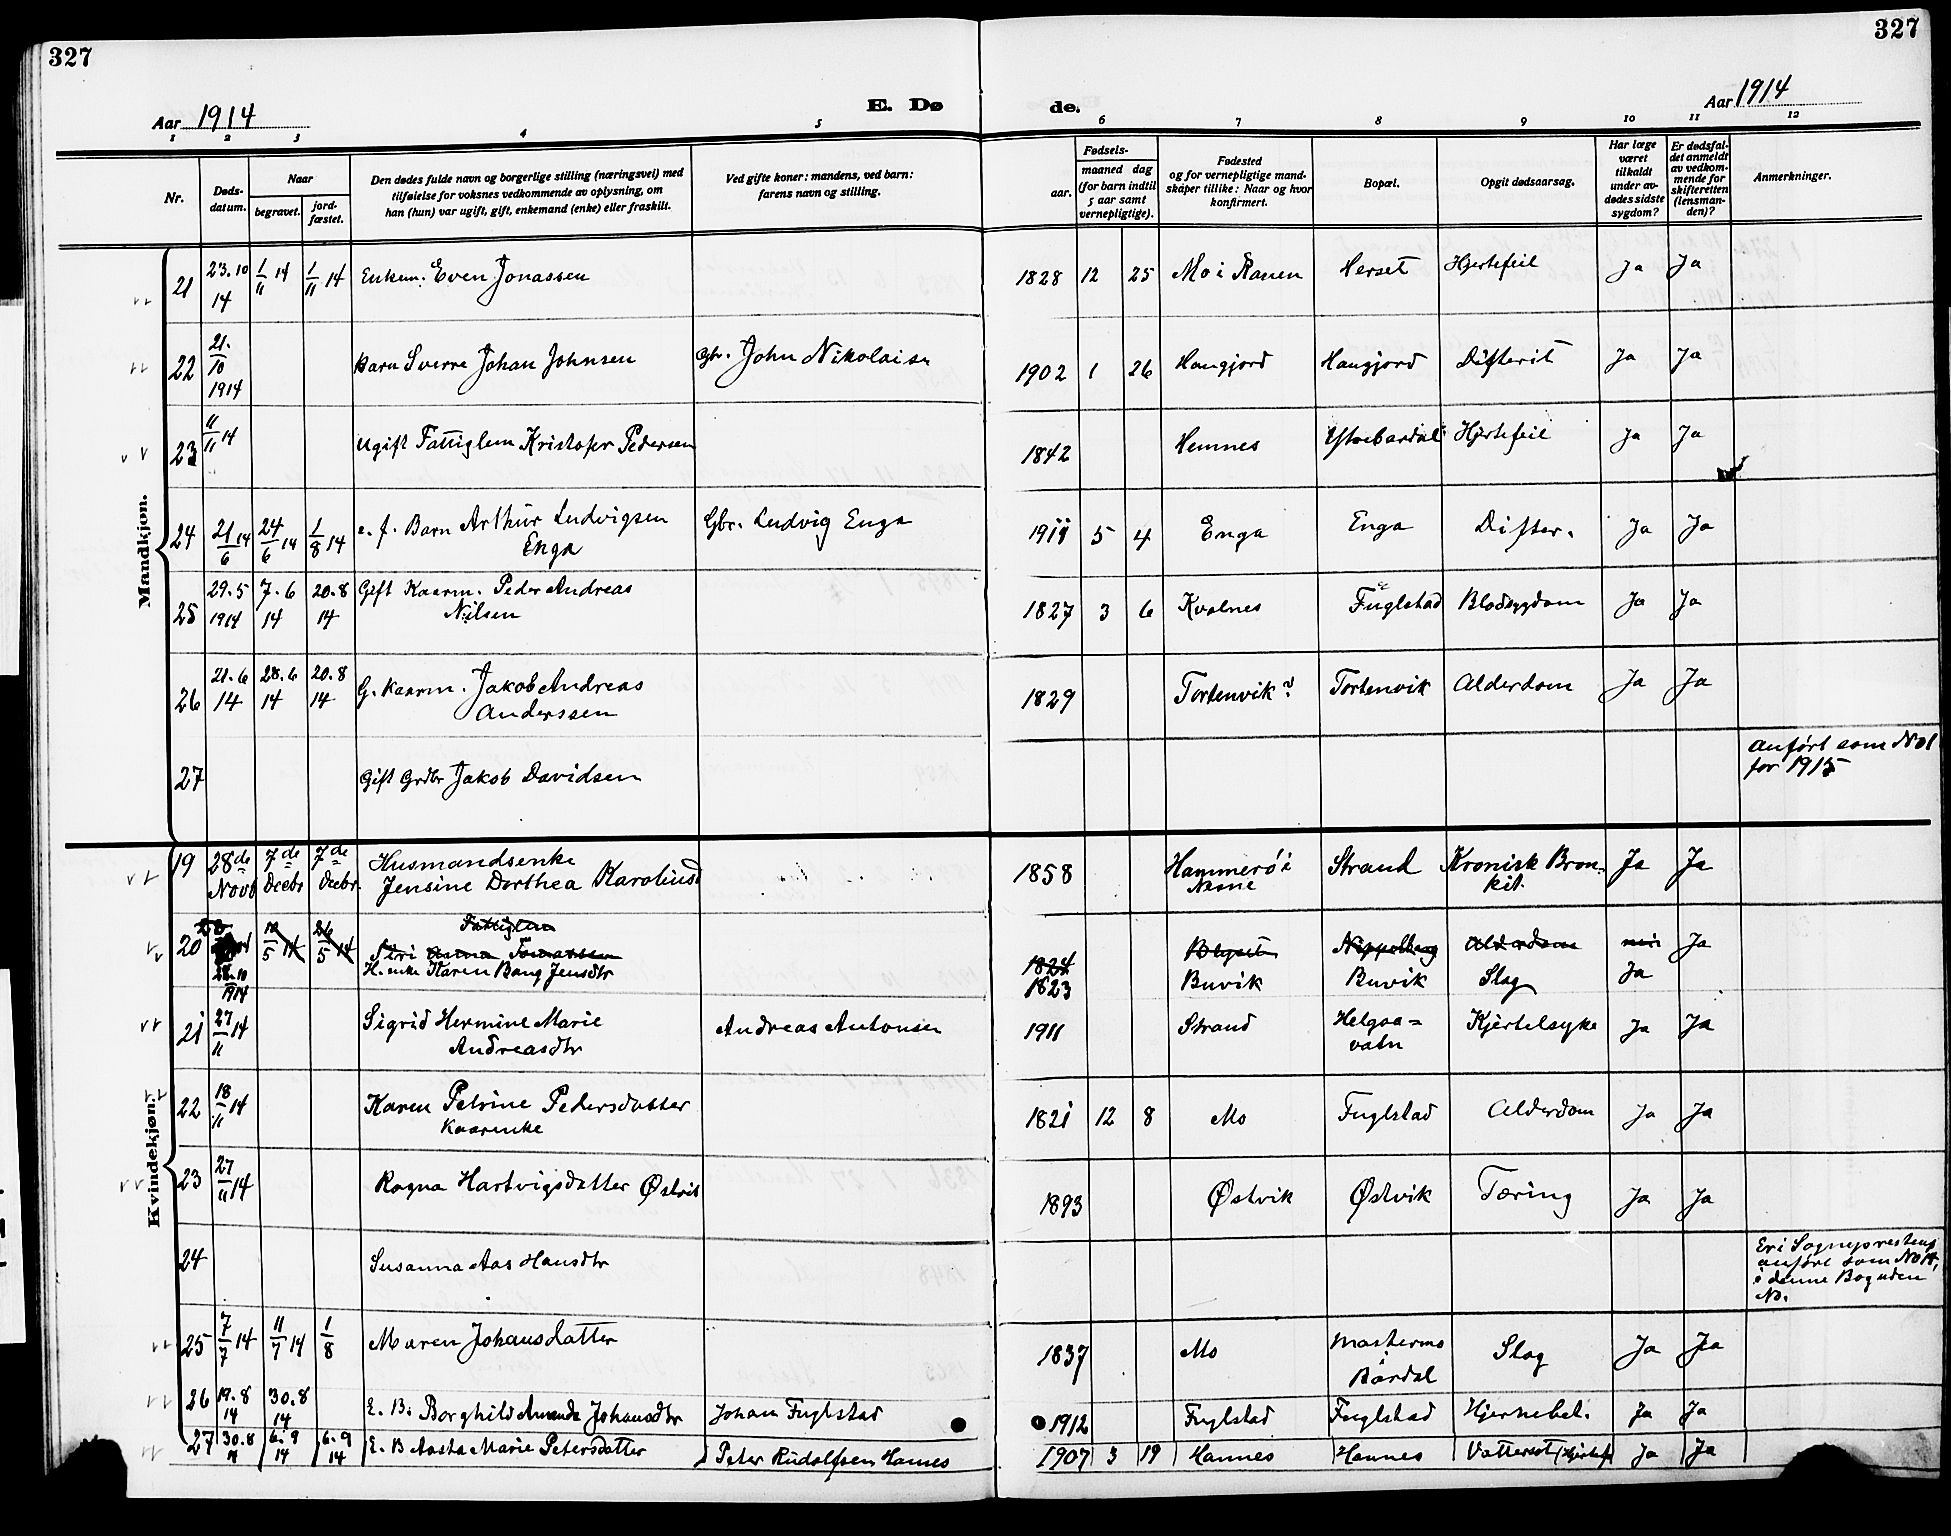 327
327
Aar 1914
E. Dø
de.
Aar 1914
1 2 3 4 5 6 7 8 9 10 11 12
Nr.
Døds-
datum.
Naar
begravet.
jord-
fæstet.
Den dødes fulde navn og borgerlige stilling (næringsvei) med
tilføielse for voksnes vedkommende av oplysning, om
han (hun) var ugift, gift, enkemand (enke) eller fraskilt.
Ved gifte koner: mandens, ved barn:
farens navn og stilling.
Fødsels-
aar.
maaned dag
(for barn indtil
5 aar samt
vernepligtige).
Fødested
og for vernepligtige mand-
skaper tillike: Naar og hvor
konfirmert.
Bopæl.
Opgit dødsaarsag.
Har læge
været
tilkaldt
under av-
dødes sidste
sygdom?
Er dødsfal-
det anmeldt
av vedkom-
mende for
skifteretten
(lensman-
den)?
Anmerkninger.
Mandkjøn.
21 23.10 14 1/11 14 1/11 14 Enkem. Even Jonassen 1828 12 25 Mo i Ranen Herset Hjertefeil Ja Ja
22 21/10 1914 Barn Sverre Johan Johnsen Gbr. John Nikolaisen 1902 1 26 Haugjord Haugjord Difterit Ja Ja
23 11/11 14 Ugift Fattiglem Kristofer Pedersen 1842 Hemnes Ytrebardal Hjertefeil Ja Ja
24 21/6 14 24/6 14 1/8 14 e. f. Barn Arthur Ludvigsen
Enga Gbr. Ludvig Enga 1911 5 4 Enga Enga Difter. Ja Ja
25 29.5 1914 7.6 14 20.8 14 Gift Kaarm. Peder Andreas
Nilsen 1827 3 6 Kvalnes Fuglstad Blodsygdom Ja Ja
26 21.6 14 28.6 14 20.8 14 G. Kaarm. Jakob Andreas
Anderssen 1829 Tortenvik? Tortenvik Alderdom Ja Ja
27 Gift Grdbr Jakob Davidsen anført som No 1
for 1915
Kvindekjøn.
19 28de Novb 7de Decbr 7de Decbr. Husmandsenke
Jensine Dorthea Karoliusd 1858 Hammerö i
Nesne Strand Kronisk Bron-
kit. Ja Ja
20 10/5 14 26/5 14 Fattiglem
Siri Anna Tomassen 1824 Nippelberg Alderdom nei Ja
28.10 1914 H. enke Karen Bang Jensdtr 1823 Buvik Buvik Slag Ja
21 27/11 14 Sigrid Hermine Marie
Andreasdtr Andreas Antonsen 1911 Strand Helgaa=
vatn Kjertelsyke Ja Ja
22 18/11 14 Karen Petrine Pedersdatter
Kaarenke 1821 12 8 Mo Fuglstad Alderdom Ja Ja
23 27/11 14 Ragna Hartvigsdatter Østvik 1893 Østvik Østvik Tæring Ja Ja
24 Susanna Aas Hansdtr Er i Sogneprestens
anført som No 14,
i denne Bog uden
No.
25 7/7 14 11/7 14 1/8 Maren Johansdatter 1837 Mo Mastermo
i
Bardal Slag Ja Ja
26 19.8 14 30.8 14 E. B. Borghild Amanda Johansdtr Johan Fuglstad 1912 Fuglstad Fuglstad Hjernebet. Ja Ja
27 30.8 14 6.9 14 6.9 14 E. B Aasta Marie Petersdatter Peter Rudolfsen Hannes 1907 3 19 Hannes Hannes Vattersot (Hjertef Ja Ja